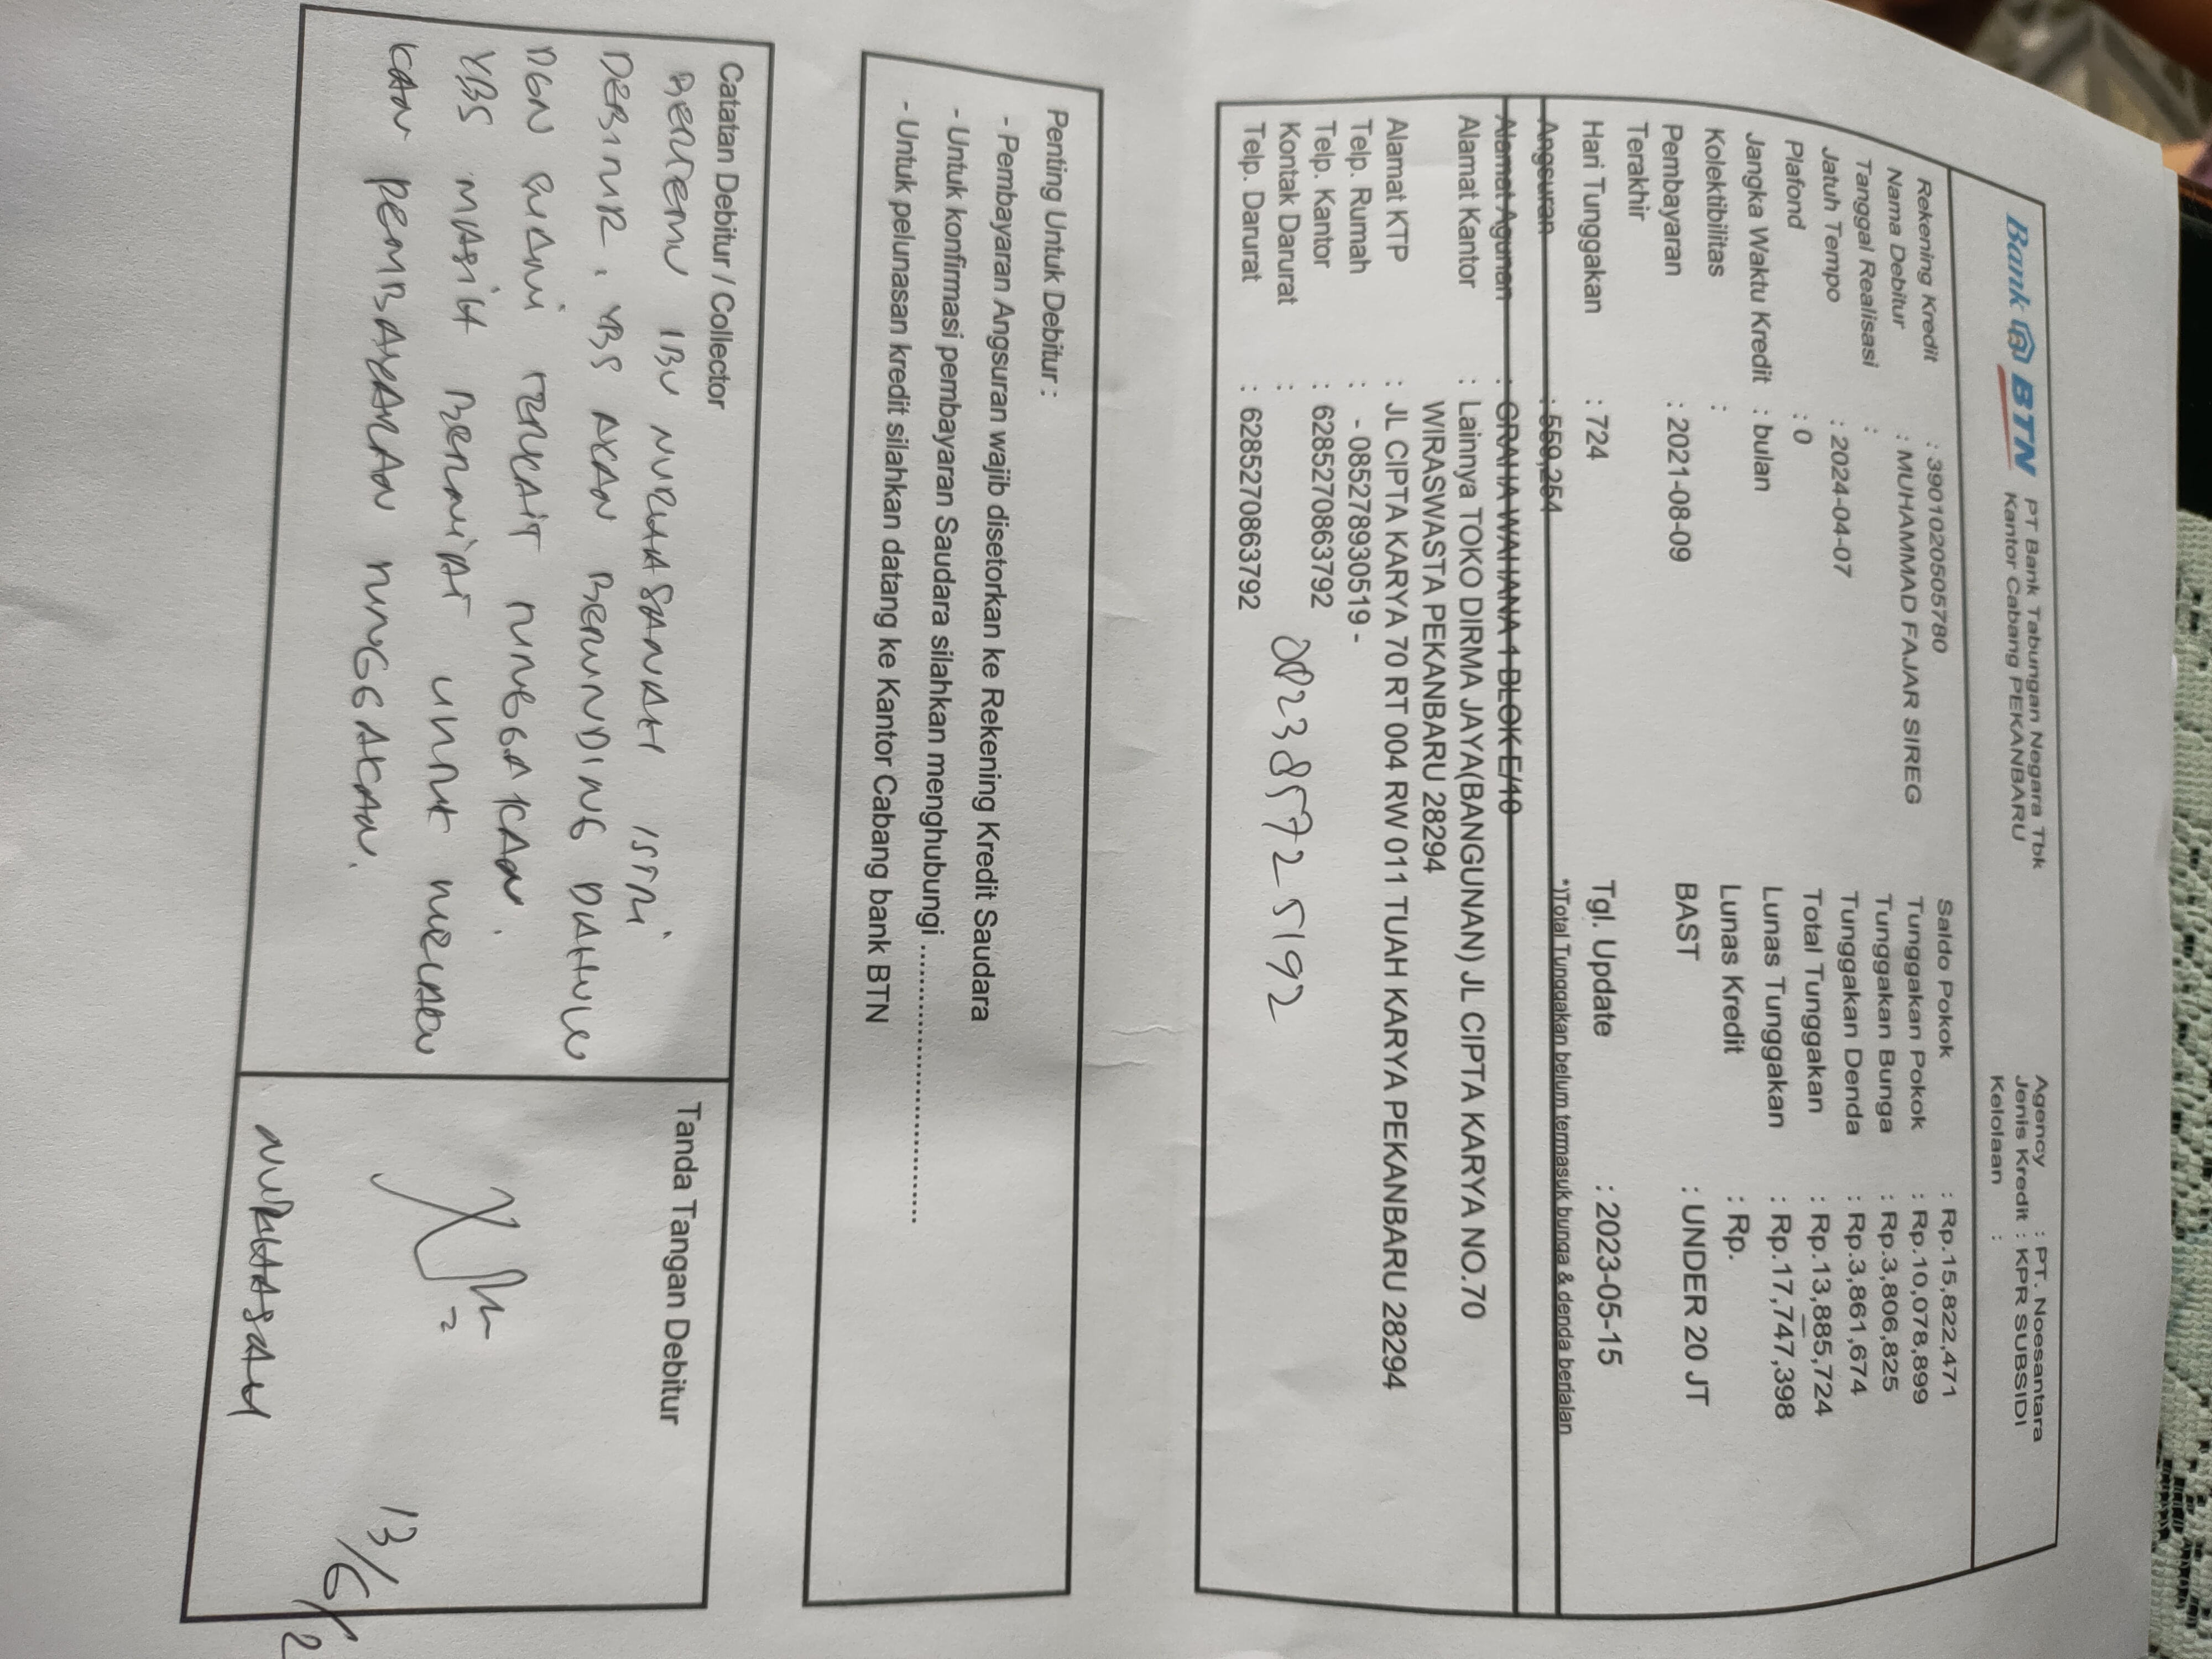 Bank BTN
PT Bank Tabungan Negara Tbk
Kantor Cabang PEKANBARU
Agency : PT. Noesantara
Jenis Kredit : KPR SUBSIDI
Kelolaan :
Rekening Kredit : 3901020505780
Nama Debitur : MUHAMMAD FAJAR SIREG
Tanggal Realisasi :
Jatuh Tempo : 2024-04-07
Plafond : 0
Jangka Waktu Kredit : bulan
Kolektibilitas :
Pembayaran Terakhir : 2021-08-09
Hari Tunggakan : 724
Saldo Pokok : Rp.15,822,471
Tunggakan Pokok : Rp.10,078,899
Tunggakan Bunga : Rp.3,806,825
Tunggakan Denda : Rp.3,861,674
Total Tunggakan : Rp.13,885,724
Lunas Tunggakan : Rp.17,747,398
Lunas Kredit : Rp.
BAST : UNDER 20 JT
Tgl. Update : 2023-05-15
*)Total Tunggakan belum termasuk bunga & denda berjalan
Angsuran : 559,254
Alamat Agunan : GRAHA WAHANA 1 BLOK E/10
Alamat Kantor : Lainnya TOKO DIRMA JAYA(BANGUNAN) JL CIPTA KARYA NO.70
WIRASWASTA PEKANBARU 28294
Alamat KTP : JL CIPTA KARYA 70 RT 004 RW 011 TUAH KARYA PEKANBARU 28294
Telp. Rumah : - 085278930519 -
Telp. Kantor : 6285270863792
Kontak Darurat :
Telp. Darurat : 6285270863792
082385725192
Penting Untuk Debitur :
- Pembayaran Angsuran wajib disetorkan ke Rekening Kredit Saudara
- Untuk konfirmasi pembayaran Saudara silahkan menghubungi ..............................
- Untuk pelunasan kredit silahkan datang ke Kantor Cabang bank BTN
Catatan Debitur / Collector
BERTEMU IBU NURHASANAH ISTRI
DEBITUR. YBS AKAN BERUNDING DAHULU
DGN SUAMI TERKAIT TUNGGAKAN.
YBS MASIH BERNIAT UNTUK MELAKU
KAN PEMBAYARAN TUNGGAKAN.
Tanda Tangan Debitur
NURHASAH
13/6/2